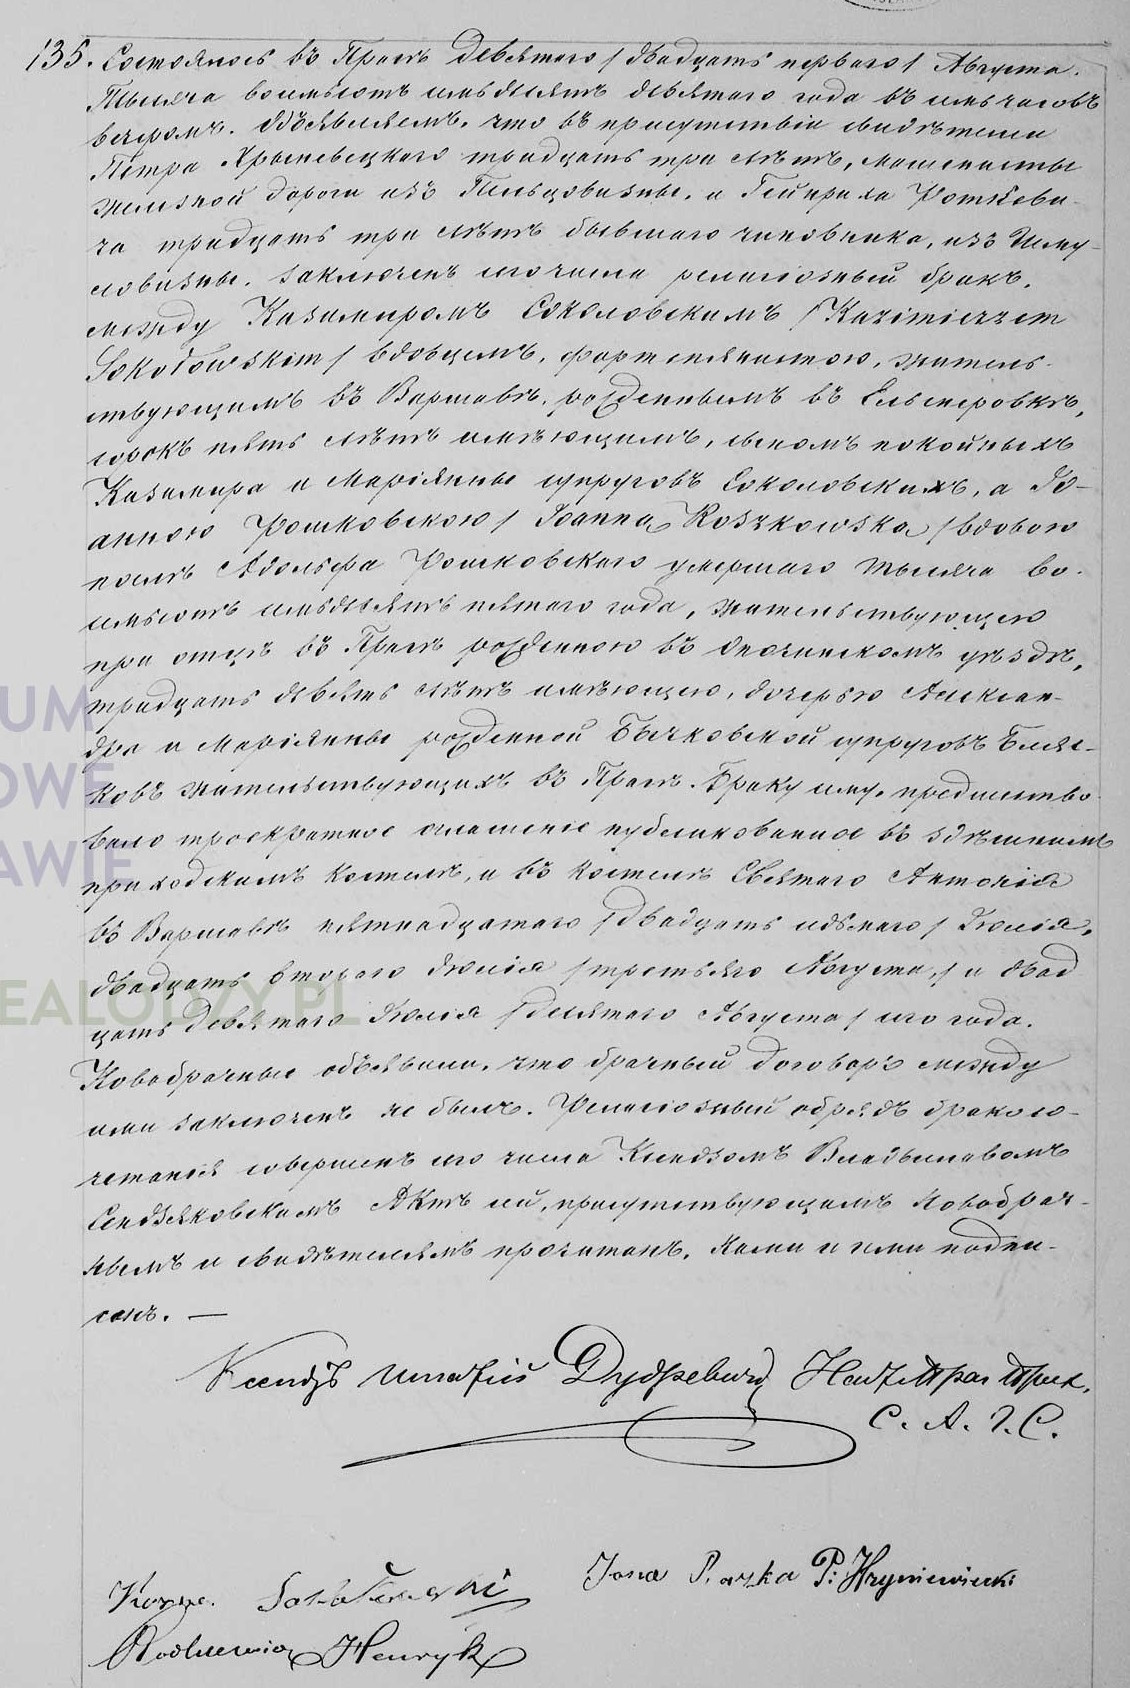 135. Состоялось въ Прагѣ девятаго /двадцать перваго/ Августа.
Тысяча восемьсотъ семьдесятъ девятаго года въ семь часовъ
вечеромъ. Объявляемъ, что въ присутствіи свидѣтелей
Петра Хрыневецкаго тридцать три лѣтъ, машинисты
желѣзной дороги изъ Пельцовизны, и Генриха Роткеви-
ча тридцать три лѣтъ бывшаго чиновника, изъ Шму-
ловизны. заключенъ сего числа религіозный бракъ.
между Казимиромъ Соколовскимъ /Kazimierzem
Sokołowskim/ вдовцемъ, фортепянистою, житель-
ствующимъ въ Варшавѣ, рожденнымъ въ
сорокъ пять лѣтъ имѣющимъ, сыномъ покойныхъ
Казимира и Маріянны супруговъ Соколовскихъ, а Іо-
анною Рошковскою /Joanną Roszkowską/ вдовою
послѣ Адольфа Рошковскаго умершаго тысяча во-
семьсотъ семьдесятъ пятаго года, жительствующею
при отцѣ въ Прагѣ рожденною въ уѣздѣ,
тридцать девять лѣтъ имѣющею, дочерью Алексан-
дра и Маріянны рожденной Бычковской супруговъ Беля-
ковъ жительствующихъ въ Прагѣ. Браку сему предшество-
вало троекратное оглашеніе публикованное въ здѣшнемъ
приходскимъ костелѣ, и въ костелѣ Святаго Антонія
въ Варшавѣ пятнадцатаго /двадцать седьмаго/ Іюля,
двадцать втораго Іюля /третьяго Августа,/ и двад-
цать девятаго Іюля /десятаго Августа/ сего года.
Новобрачные объявили, что брачный договоръ между
ими заключенъ не былъ. Религіозный обрядъ бракосо-
четанія совершенъ сего числа Ксендзомъ Владыславомъ
Сендзяковскимъ Актъ сей, присутствующимъ новобрач-
нымъ и свидѣтелямъ прочитанъ, нами и ими подпи-
санъ. —
Ксендзъ Игнатій Дудревичъ
С. А. Г. С.
Jona P. Hryniewiecki
Sokołowski
Rodkiewicz Henryk